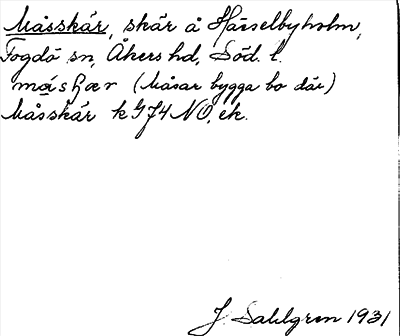 Måsskär, skär å Härselbyholm,
Fogdö sn, Åkers hd, Söd. l.
(Måsar bygga bo där)
Måsskär k G74 NO, ek.
J Sahlgren 1931